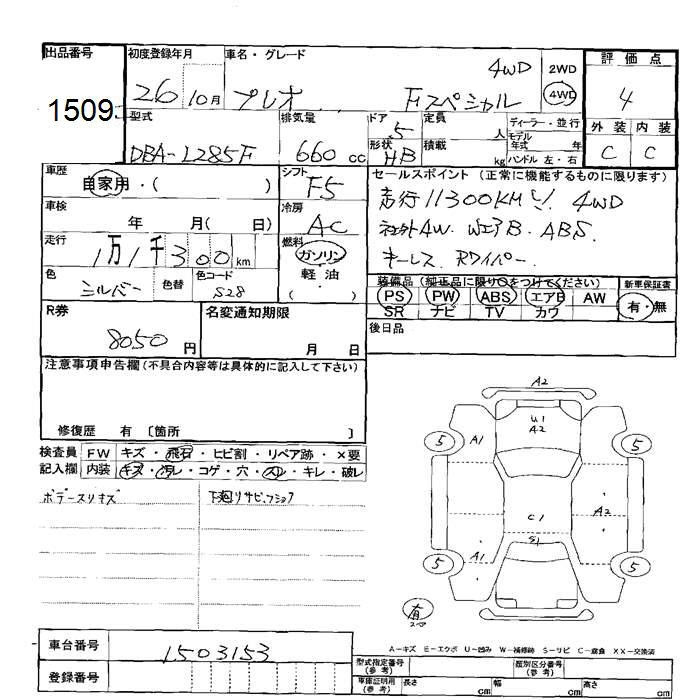 出品番号 初度登録年月 車名・グレード 評価点
1509 26 10月 プレオ Fスペシャル 4WD 2WD 4WD 4
型式 排気量 ドア 5 定員 人 ディーラー・並行 外装 内装
DBA-L285F 660cc 形状 HB 積載 kg モデル年式 年 ハンドル 左・右 C C
車歴 自家用・( ) シフト F5 セールスポイント (正常に機能するものに限ります)
車検 年 月( 日) 冷房 AC 走行11300KM 4WD
社外AW. WエアB. ABS.
走行 1万1千300km 燃料 ガソリン・軽油・( ) キーレス Rワイパー
色 シルバー 色替 色コード S28 装備品 (純正品に限り○をつけてください) 新車保証書
PS PW ABS エアB AW 有・無
SR ナビ TV カワ
R券 8050円 名変通知期限 月 日 後日品
注意事項申告欄(不具合内容等は具体的に記入して下さい)
修復歴 有 〔箇所 〕
検査員記入欄 FW キズ・飛石・ヒビ割・リペア跡・×要
内装 キズ・汚レ・コゲ・穴・スレ・キレ・破レ
ボデースリキズ 下廻りサビ
A2
U1
A2
5 A1 5
C1 A2
S1
5 A1 5
有 スペア
A-キズ E-エクボ U-凹み W-補修跡 S-サビ C-腐食 XX-交換済
車台番号 1503153 型式指定番号(参考) 類別区分番号(参考)
登録番号 車庫証明用(参考) 長さ cm 幅 cm 高さ cm